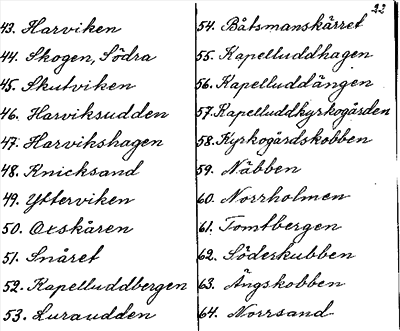 22
43. Harviken
44. Skogen, Södra
45. Skutviken
46. Harviksudden
47. Harvikshagen
48. Knicksand
49. Ytterviken
50. Oxskären
51. Snåret
52. Kapelluddbergen
53. Luraudden
54. Båtsmanskärret
55. Kapelluddhagen
56. Kapelluddängen
57. Kapelluddkyrkogården
58. Kyrkogårdskobben
59. Näbben
60. Norrholmen
61. Tomtbergen
62. Söderkubben
63. Ängskobben
64. Norrsand